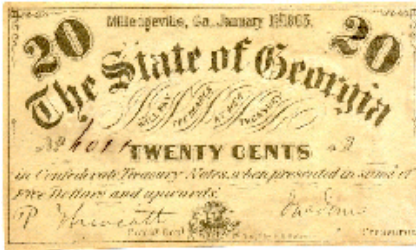 20 Milledgeville, Ga. January 1st 1863. 20
The State of Georgia
WILL PAY THE BEARER AT HER TREASURY
No
TWENTY CENTS
in Confederate Treasury Notes, when presented in sums of
Five Dollars and upwards.